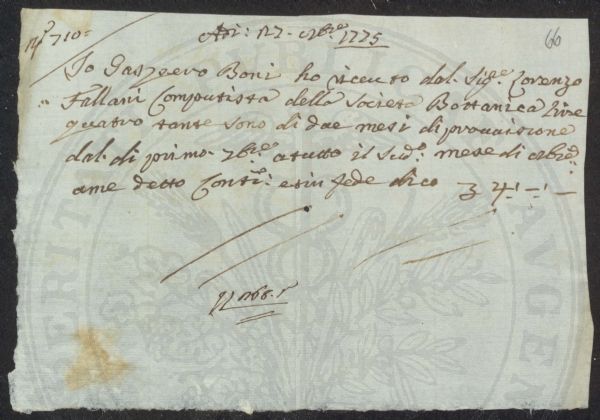 N° 710= Adi: 27. Xbre 1775 66
Io Gaspero Boni ho riceuto dal Sig.e Lorenzo
Fallani Computista della Società Bottanica Lire
quattro tante sono di due mesi di prouuisione
dal di primo 9bre a tutto il sud.o mese di Xbre d.o
a me detto Cont.i e in fede dico 4.-.-